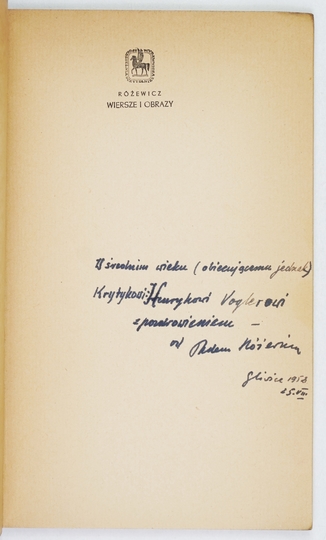 RÓŻEWICZ
WIERSZE I OBRAZY
W średnim wieku (obiecującemu jednak)
Krytykowi: Henrykowi Voglerowi
z pozdrowieniem –
od Tadeusz Różewicz
Gliwice 1958
25.VIII